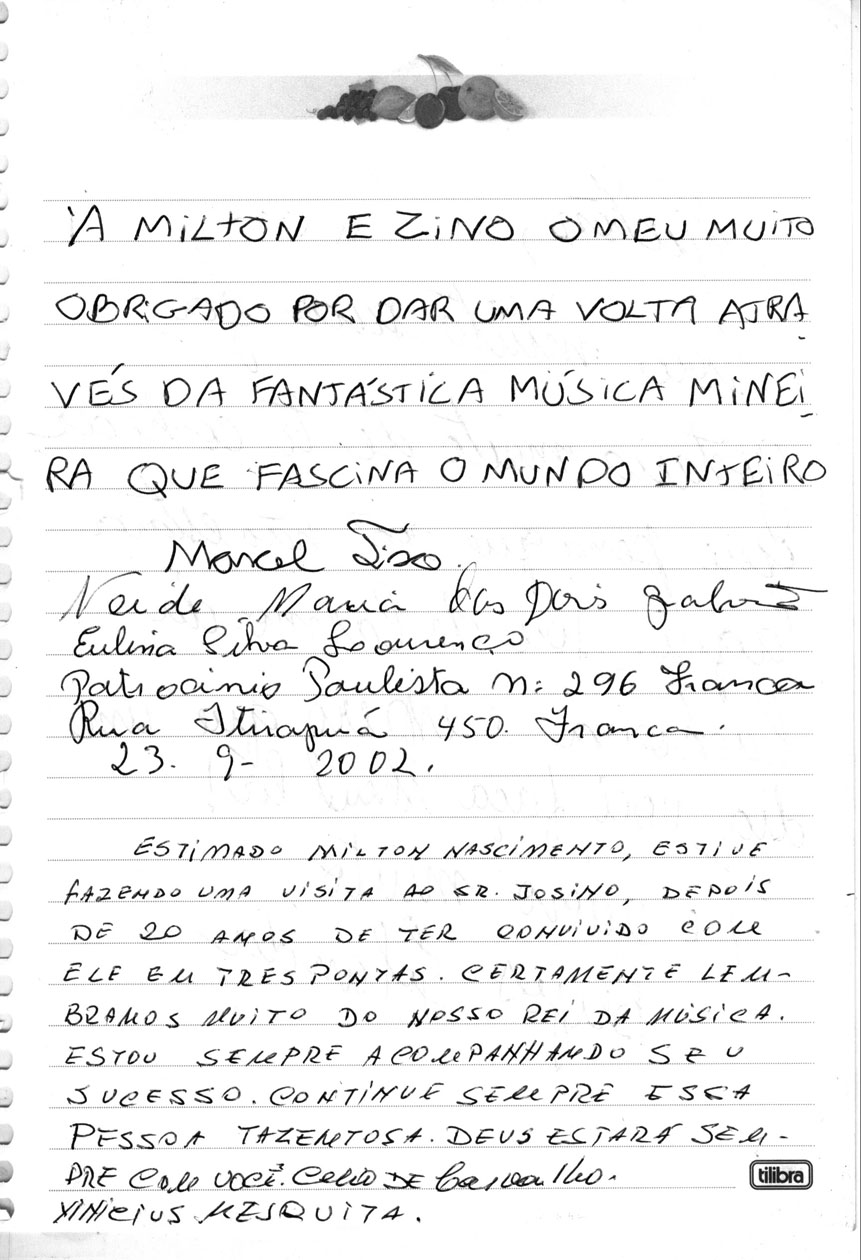 'A MILTON E ZINO O MEU MUITO
OBRIGADO POR DAR UMA VOLTA ATRA-
VÉS DA FANTÁSTICA MÚSICA MINEI-
RA QUE FASCINA O MUNDO INTEIRO
Marcel Tiso.
Neide Maria dos
Eulina Silva Lourenço
Patrocinio Paulista n: 296 Franca
Rua Itirapuá 450. Franca.
23. 9- 2002.
ESTIMADO MILTON NASCIMENTO, ESTIVE
FAZENDO UMA VISITA AO SR. JOSINO, DEPOIS
DE 20 ANOS DE TER CONVIVIDO COM
ELE EM TRES PONTAS. CERTAMENTE LEM-
BRAMOS MUITO DO NOSSO REI DA MÚSICA.
ESTOU SEMPRE ACOMPANHANDO SEU
SUCESSO. CONTINUE SEMPRE ESSA
PESSOA TAZENTOSA. DEUS ESTARÁ SEM-
PRE COM VOCÊ. CELIO DE Carvalho.
VINICIUS MESQUITA.
tilibra